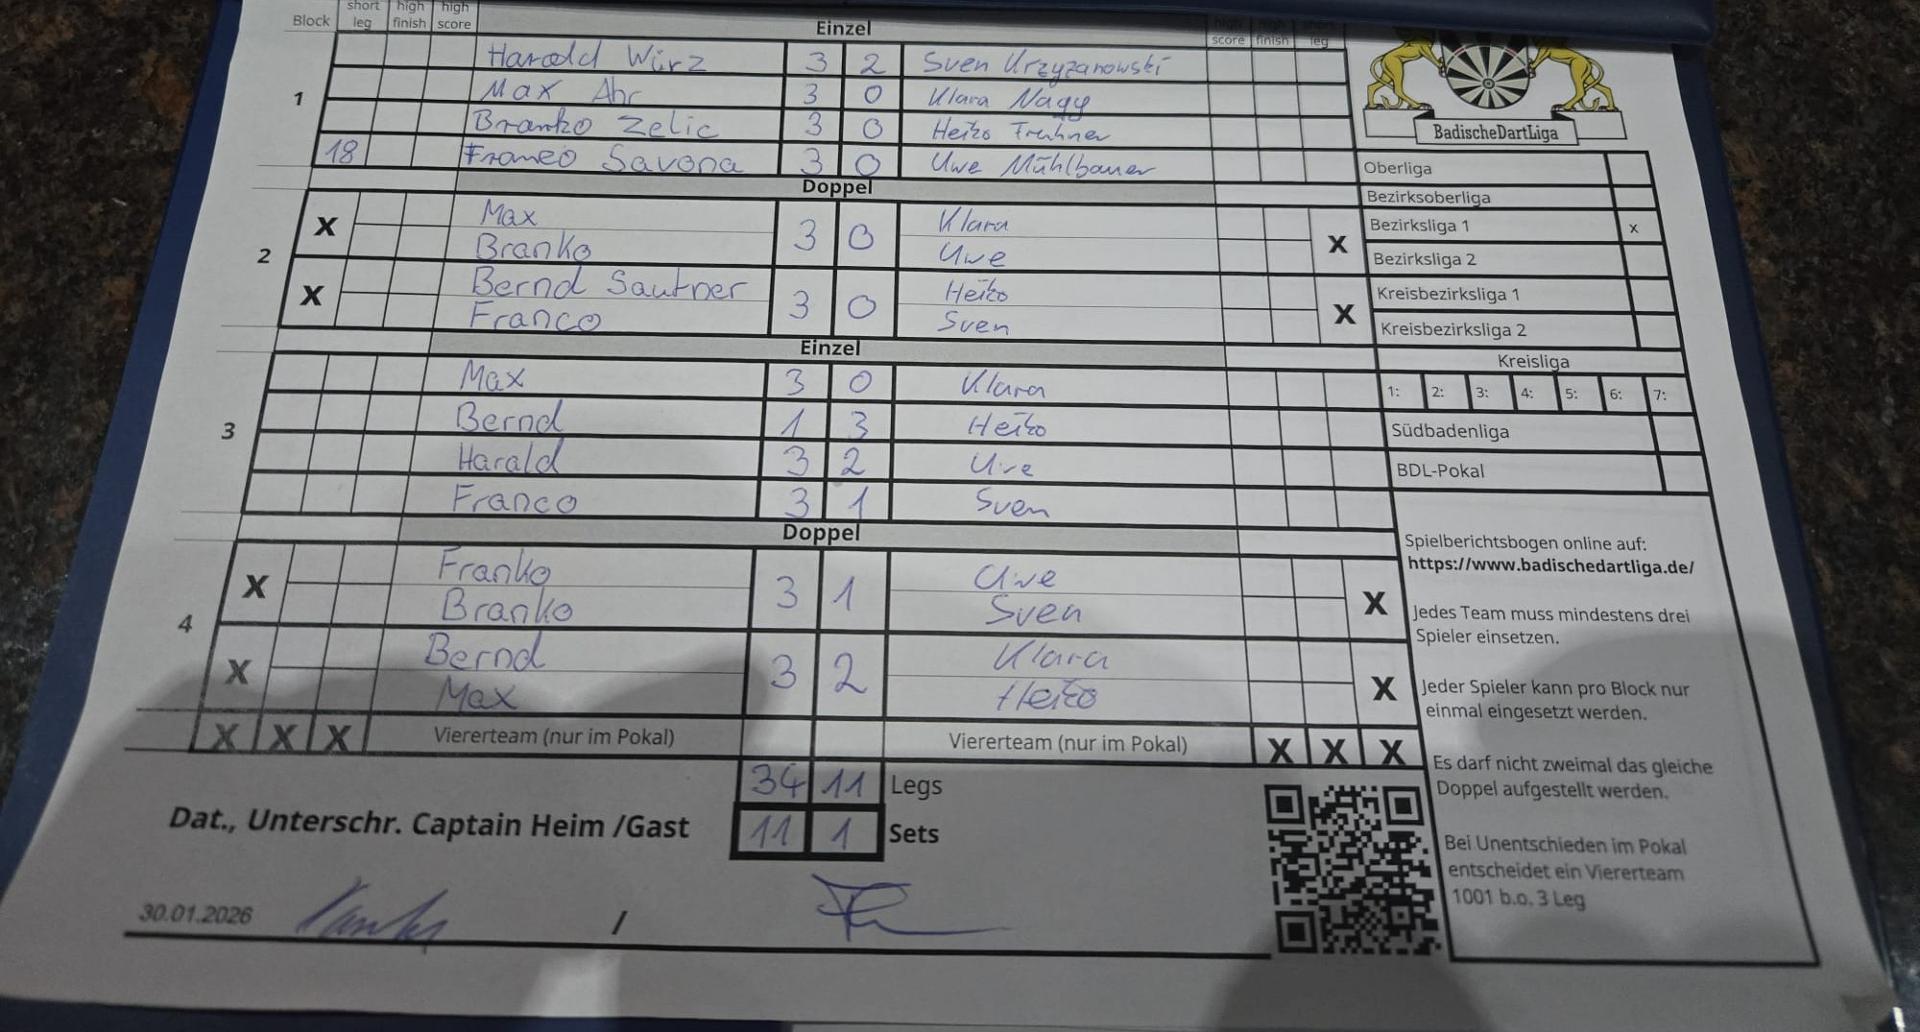 Block short leg high finish high score Einzel high score high finish short leg
Harald Würz 3 2 Sven Krzyzanowski
1 Max Ahr 3 0 Klara Nagy
Branko Zelic 3 0 Heiko
18 Franco Savona 3 0 Uwe Mühlbauer
Doppel
2
X Max 3 0 Klara X
Branko Uwe
X Bernd Sautner 3 0 Heiko X
Franco Sven
Einzel
3
Max 3 0 Klara
Bernd 1 3 Heiko
Harald 3 2 Uwe
Franco 3 1 Sven
Doppel
4
X Franko 3 1 Uwe X
Branko Sven
X Bernd 3 2 Klara X
Max Heiko
X X X Viererteam (nur im Pokal) Viererteam (nur im Pokal) X X X
34 11 Legs
Dat., Unterschr. Captain Heim /Gast 11 1 Sets
30.01.2026 /
BadischeDartLiga
Oberliga
Bezirksoberliga
Bezirksliga 1 x
Bezirksliga 2
Kreisbezirksliga 1
Kreisbezirksliga 2
Kreisliga
1: 2: 3: 4: 5: 6: 7:
Südbadenliga
BDL-Pokal
Spielberichtsbogen online auf:
https://www.badischedartliga.de/
Jedes Team muss mindestens drei
Spieler einsetzen.
Jeder Spieler kann pro Block nur
einmal eingesetzt werden.
Es darf nicht zweimal das gleiche
Doppel aufgestellt werden.
Bei Unentschieden im Pokal
entscheidet ein Viererteam
1001 b.o. 3 Leg